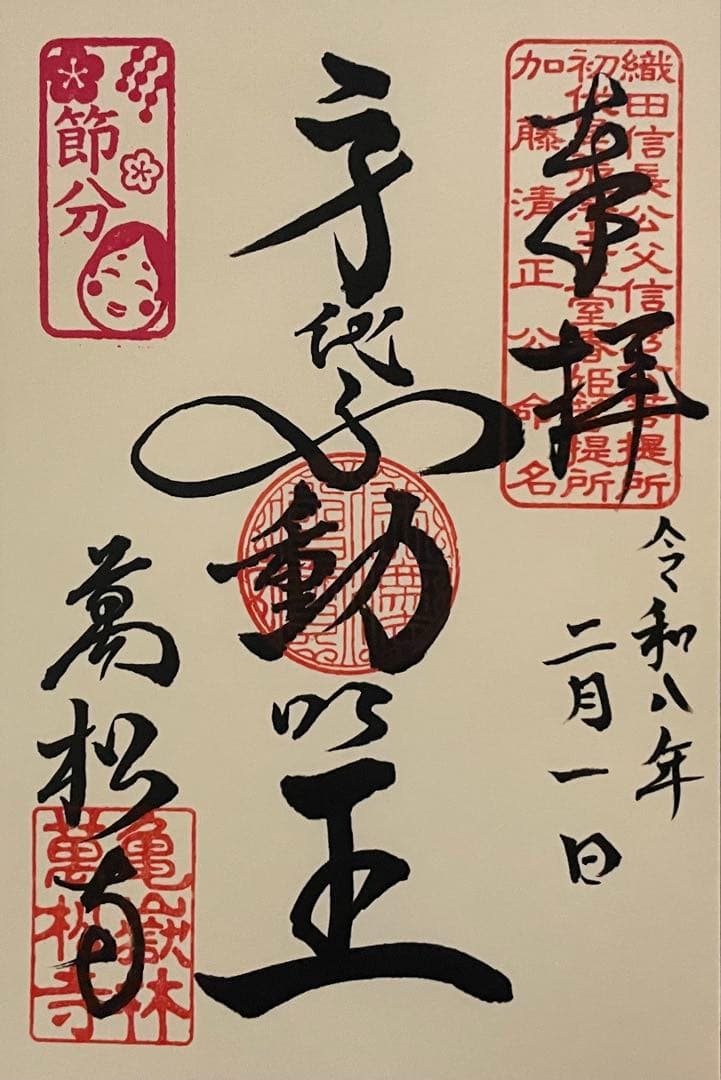 織田信長公父信秀公菩提所
初代尾張藩主正室春姫菩提所
加藤清正公命名
奉拝
令和八年
二月一日
身代不動明王
節分
萬松寺
亀嶽林
萬松寺